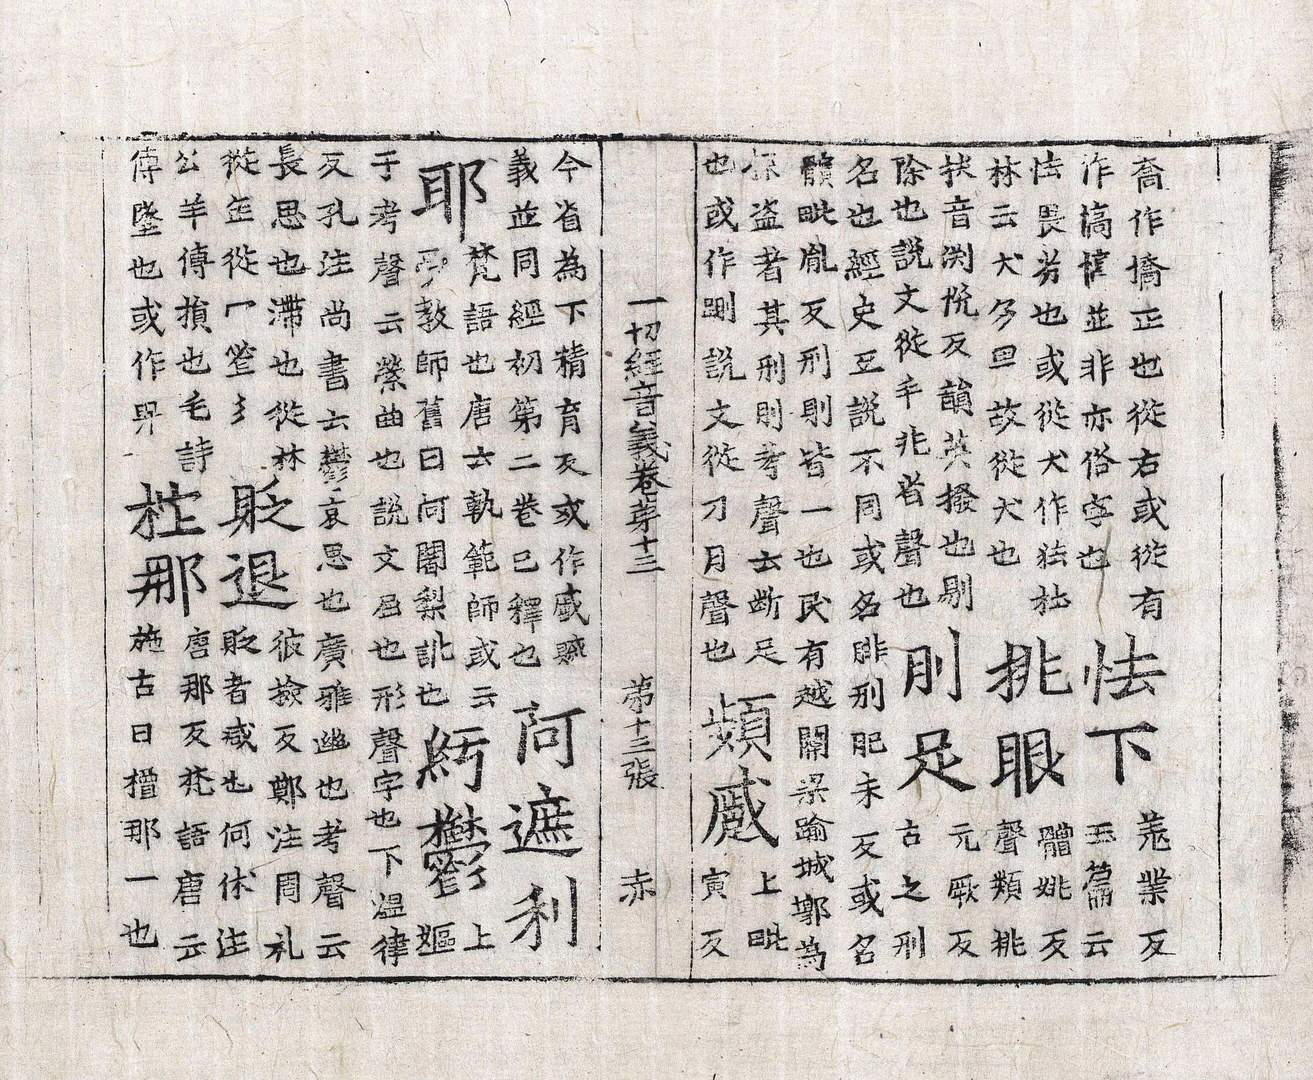 喬作撟正也從右或從有
作搞㩁並非亦俗字也
怯下
羗業反
玉篇云
怯畏劣也或從犬作㹤杜
林云犬多畏故從犬也
挑眼
體姚反
聲類挑
抉音渕恱反韻英撥也剔
除也說文從手兆省聲也
刖足
元厥反
古之刑
名也經史互說不同或名腓刑肥未反或名
髕毗胤反刑則皆一也民有越關梁踰城郭為
採盜者其刑刖考聲云斷足
也或作跀說文從刀月聲也
頻蹙
上毗
寅反
一切經音義卷苐十三 第十三張 赤
今省為下精育反或作戚顣
義並同經初第二卷已釋也
阿遮利
耶
梵語也唐云軌範師或云
教師舊曰阿闍梨訛也
紆鬱
上
嫗
于考聲云縈曲也說文屈也形聲字也下溫律
反孔注尚書云鬱哀思也廣雅幽也考聲云
長思也滯也從林
從缶從冖鬯彡
貶退
彼撿反鄭注周礼
貶者減也何休注
公羊傳損也毛詩
傳墜也或作
柱那
唐那反梵語唐云
施古曰檀那一也